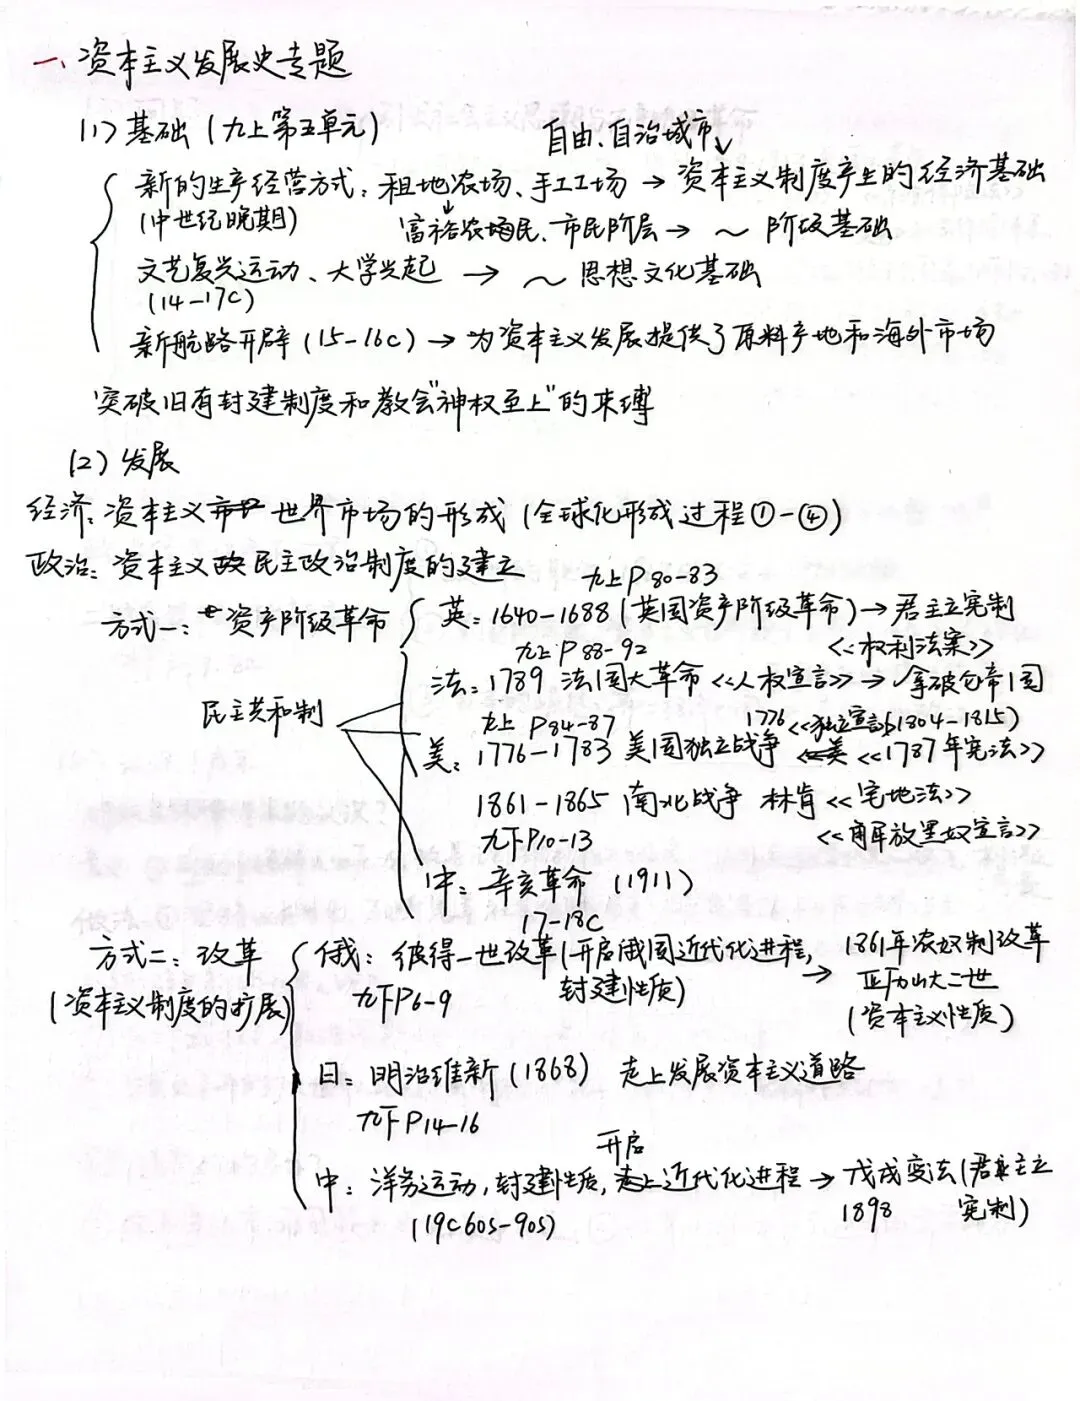 一、资本主义发展史专题
(1) 基础 (九上第五单元)
自由、自治城市
新的生产经营方式：租地农场、手工工场 → 资本主义制度产生的经济基础
(中世纪晚期)
富裕农民、市民阶层 → ～ 阶级基础
文艺复兴运动、大学兴起 → ～ 思想文化基础
(14-17c)
新航路开辟 (15-16c) → 为资本主义发展提供了原料产地和海外市场
突破旧有封建制度和教会"神权至上"的束缚
(2) 发展
经济：资本主义世界市场的形成 (全球化形成过程①-④)
政治：资本主义民主政治制度的建立
九上P80-83
方式一：资产阶级革命
英：1640-1688 (英国资产阶级革命) → 君主立宪制
九上P88-92
<<权利法案>>
法：1789 法国大革命 <<人权宣言>> → 拿破仑帝国
(1804-1815)
民主共和制
九上 P84-87
1776 <<独立宣言>>
美：1776-1783 美国独立战争 <<1787年宪法>>
1861-1865 南北战争 林肯 <<宅地法>>
九下P10-13
<<解放黑奴宣言>>
中：辛亥革命 (1911)
17-18c
方式二：改革
(资本主义制度的扩展)
俄：彼得一世改革(开启俄国近代化进程,
封建性质)
→ 1861年农奴制改革
亚历山大二世
(资本主义性质)
九下P6-9
日：明治维新 (1868) 走上发展资本主义道路
九下P14-16
开启
中：洋务运动, 封建性质, 近代化进程 → 戊戌变法 (君主立
宪制)
(19c60s-90s)
1898